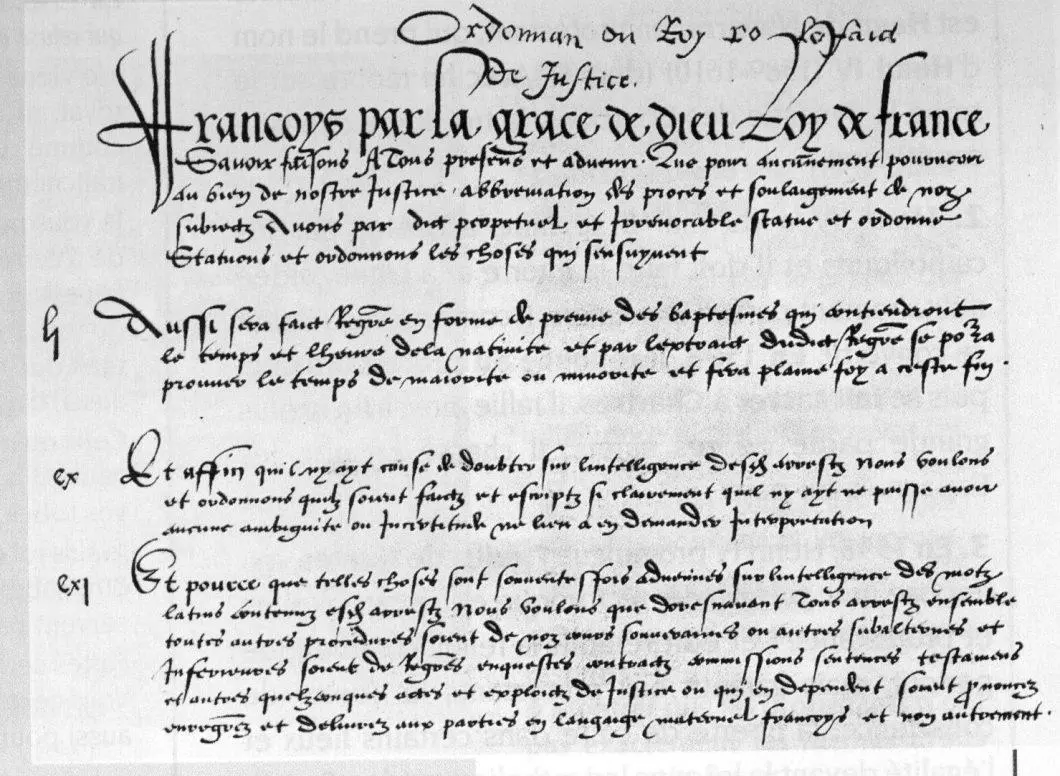 Ordonnan du Roy
De Justice.
Francoys par la grace de dieu Roy de france
Savoir faisons A Tous presens et advenir. Que pour aucunement pourveoir
au bien de nostre Justice. abbreviation des proces et soulaigement de noz
subiectz Avons par edict perpetuel et Irrevocable statue et ordonne
Statuons et ordonnons les choses qui sensuyvent
Aussi sera faict Regrē en forme de preuve des baptesmes qui contiendront
le temps et lheure dela nativite et par lextraict dudict Regrē se pourra
prouver le temps de maiorite ou minorite et fera plaine foy a ceste fin.
cx Et affin quil ny ayt cause de doubter sur lintelligence desd arrestz Nous voulons
et ordonnons quilz soient faictz et escriptz si clairement quil ny ayt ne puisse avoir
aucune ambiguite ou Incertitude ne lieu a en demander Interpretation
cxj Et pource que telles choses sont souventesfois advenues sur lintelligence des motz
latins contenuz esd arrestz Nous voulons que doresnavant Tous arrestz ensemble
toutes autres procedures soient de noz cours souveraines ou autres subalternes et
Inferieures soient de Regrēs enquestes contractz commissions sentences testamens
et autres quelzconques actes et exploictz de Justice ou qui en dependent soient pnoncez
enregrēz et delivrez aux parties en langaige maternel francoys et non autrement.